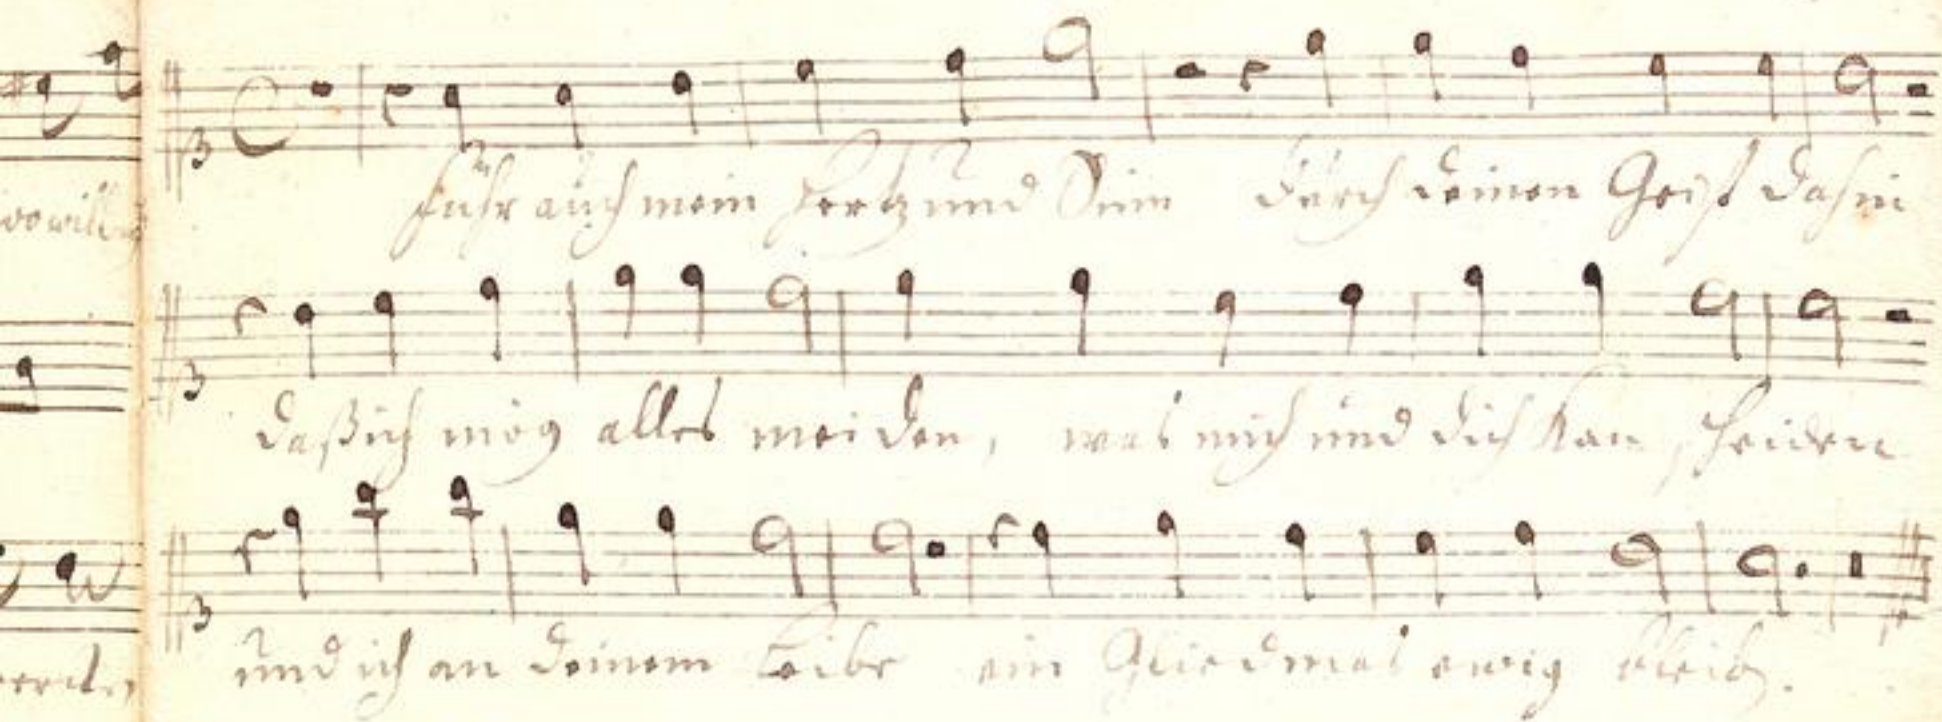 führ auch mein Hertz und Sinn durch deinen Geist dahin
daß ich mög alles meiden, was mich und dich kan scheiden
und ich an deinem Leibe ein Gliedmas ewig bleib.